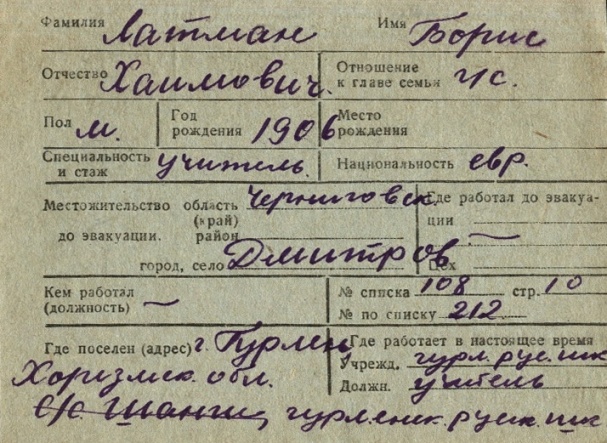 Фамилия Латман Имя Борис
Отчество Хаимович. Отношение к главе семьи г/с.
Пол м. Год рождения 1906 Место рождения
Специальность и стаж учитель. Национальность евр.
Местожительство область (край) Черниговск. Где работал до эвакуа-
до эвакуации. район ции —
город, село Дмитров Цех
Кем работал (должность) — № списка 108 стр. 10
№ по списку 212
Где поселен (адрес) г. Гурлен Где работает в настоящее время
Хорезмск. обл. Учрежд. гурл. рус. шк
Должн. учитель
гурленск. руск. шк